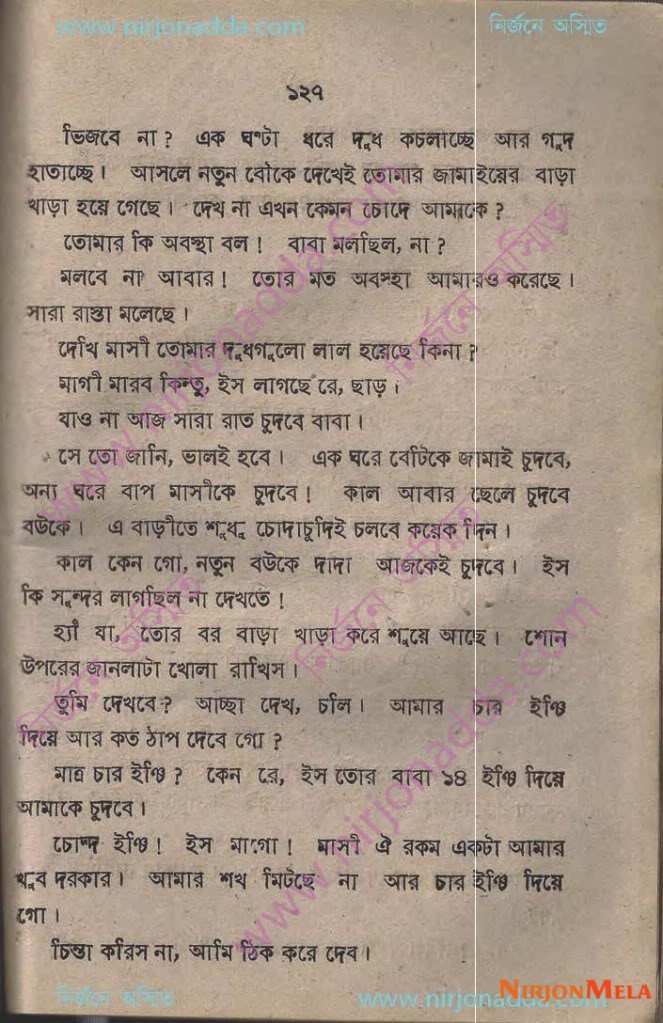 www.nirjonadda.com নির্জনে অস্মিত
১২৭
ভিজবে না? এক ঘণ্টা ধরে দুধ কচলাচ্ছে আর গুদ
হাতাচ্ছে। আসলে নতুন বৌকে দেখেই তোমার জামাইয়ের বাড়া
খাড়া হয়ে গেছে। দেখ না এখন কেমন চোদে আমাকে?
তোমার কি অবস্থা বল! বাবা মলছিল, না?
মলবে না আবার! তোর মত অবস্হা আমারও করেছে।
সারা রাস্তা মলেছে।
দেখি মাসী তোমার দুধগুলো লাল হয়েছে কিনা?
মাগী মারব কিন্তু, ইস লাগছে রে, ছাড়।
যাও না আজ সারা রাত চুদবে বাবা।
সে তো জানি, ভালই হবে। এক ঘরে বেটিকে জামাই চুদবে,
অন্য ঘরে বাপ মাসীকে চুদবে! কাল আবার ছেলে চুদবে
বউকে। এ বাড়ীতে শুধু চোদাচুদিই চলবে কয়েক দিন।
কাল কেন গো, নতুন বউকে দাদা আজকেই চুদবে। ইস
কি সুন্দর লাগছিল না দেখতে!
হ্যাঁ যা, তোর বর বাড়া খাড়া করে শুয়ে আছে। শোন
উপরের জানলাটা খোলা রাখিস।
তুমি দেখবে? আচ্ছা দেখ, চলি। আমার চার ইঞ্চি
দিয়ে আর কত ঠাপ দেবে গো?
মাত্র চার ইঞ্চি? কেন রে, ইস তোর বাবা ১৪ ইঞ্চি দিয়ে
আমাকে চুদবে।
চোদ্দ ইঞ্চি! ইস মাগো! মাসী ঐ রকম একটা আমার
খুব দরকার। আমার শখ মিটছে না আর চার ইঞ্চি দিয়ে
গো।
চিন্তা করিস না, আমি ঠিক করে দেব।
www.nirjonadda.com নির্জনে অস্মিত
নির্জনে অস্মিত www.nirjonadda.com
NIRJONMELA